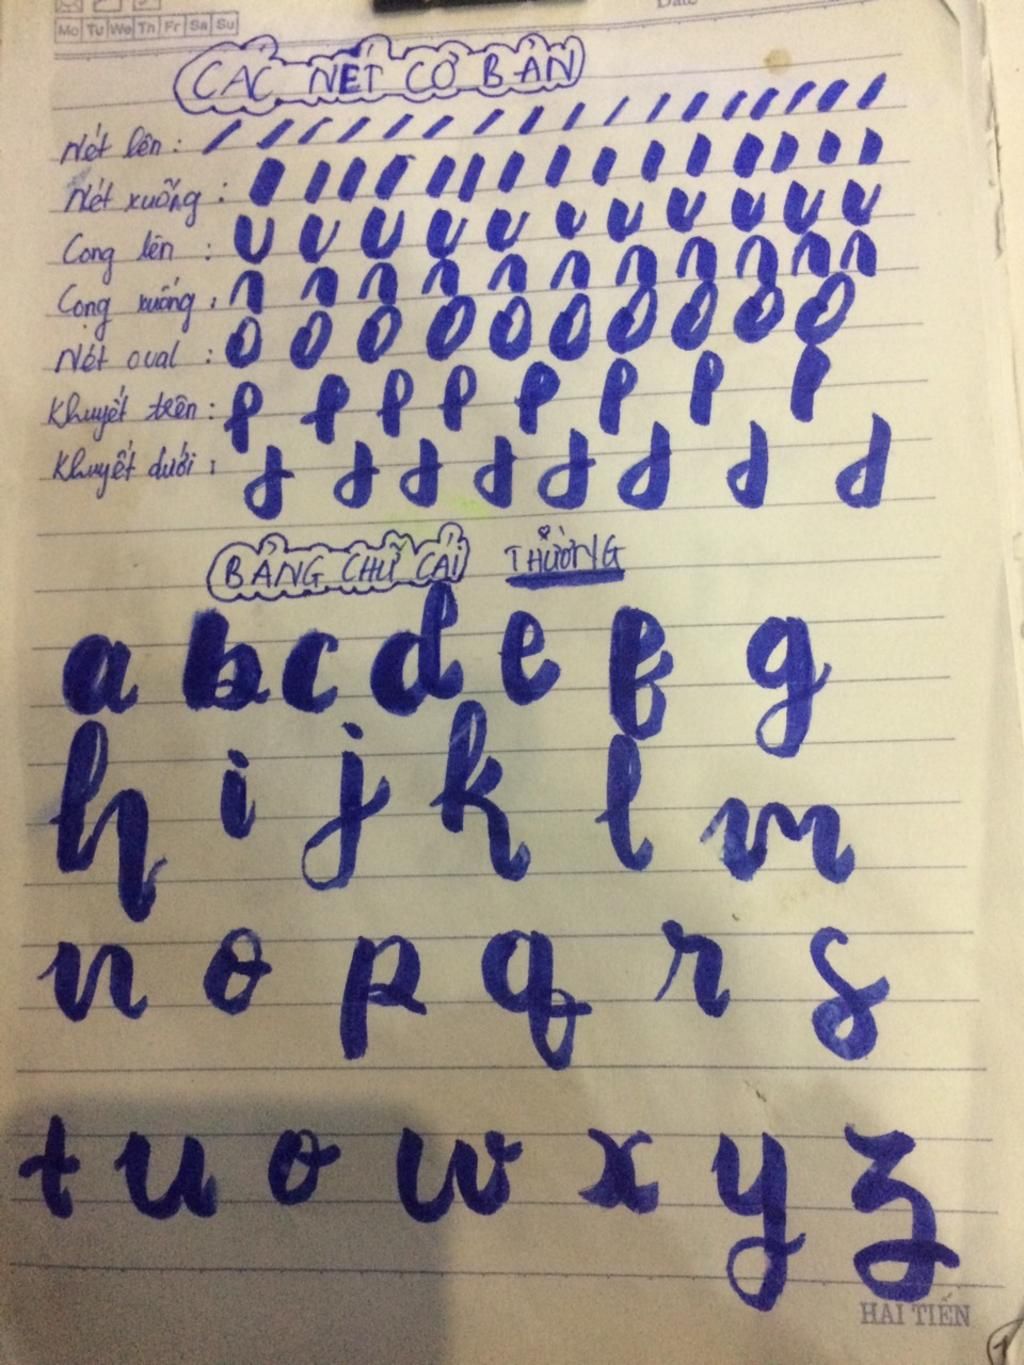 Date
Mo Tu We Th Fr Sa Su
CÁC NÉT CƠ BẢN
Nét lên :
Nét xuống :
Cong lên :
Cong xuống :
Nét oval :
Khuyết trên :
Khuyết dưới :
BẢNG CHỮ CÁI THƯỜNG
a b c d e f g
h i j k l m
n o p q r s
t u o w x y z
HẢI TIẾN